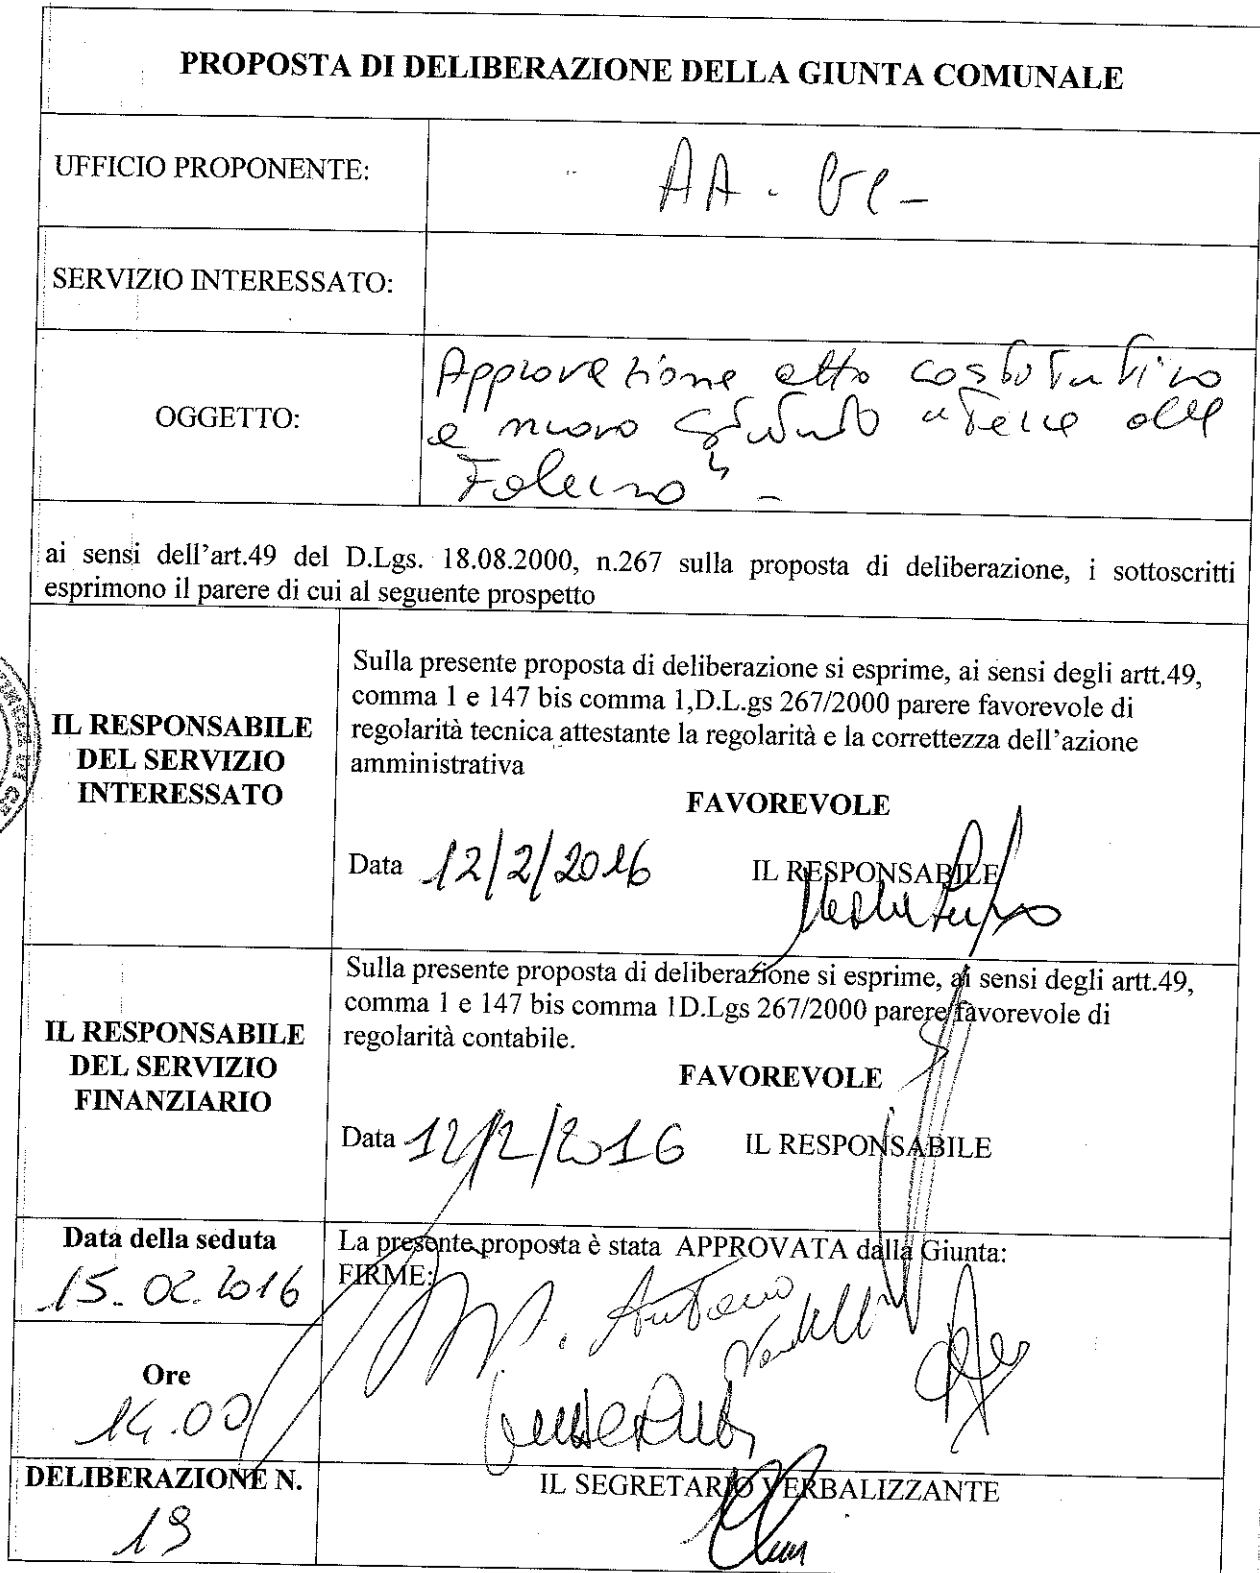 PROPOSTA DI DELIBERAZIONE DELLA GIUNTA COMUNALE
UFFICIO PROPONENTE:
AA.
SERVIZIO INTERESSATO:
OGGETTO:
Approvazione atto costitutivo
e nuovo Statuto "Terre del
Falerno" -
ai sensi dell'art.49 del D.Lgs. 18.08.2000, n.267 sulla proposta di deliberazione, i sottoscritti
esprimono il parere di cui al seguente prospetto
IL RESPONSABILE
DEL SERVIZIO
INTERESSATO
Sulla presente proposta di deliberazione si esprime, ai sensi degli artt.49,
comma 1 e 147 bis comma 1,D.L.gs 267/2000 parere favorevole di
regolarità tecnica attestante la regolarità e la correttezza dell'azione
amministrativa
FAVOREVOLE
Data 12/2/2016 IL RESPONSABILE
IL RESPONSABILE
DEL SERVIZIO
FINANZIARIO
Sulla presente proposta di deliberazione si esprime, ai sensi degli artt.49,
comma 1 e 147 bis comma 1D.Lgs 267/2000 parere favorevole di
regolarità contabile.
FAVOREVOLE
Data 12/2/2016 IL RESPONSABILE
Data della seduta
15.02.2016
La presente proposta è stata APPROVATA dalla Giunta:
FIRME:
Antonio
Ore
14.00
DELIBERAZIONE N.
19
IL SEGRETARIO VERBALIZZANTE